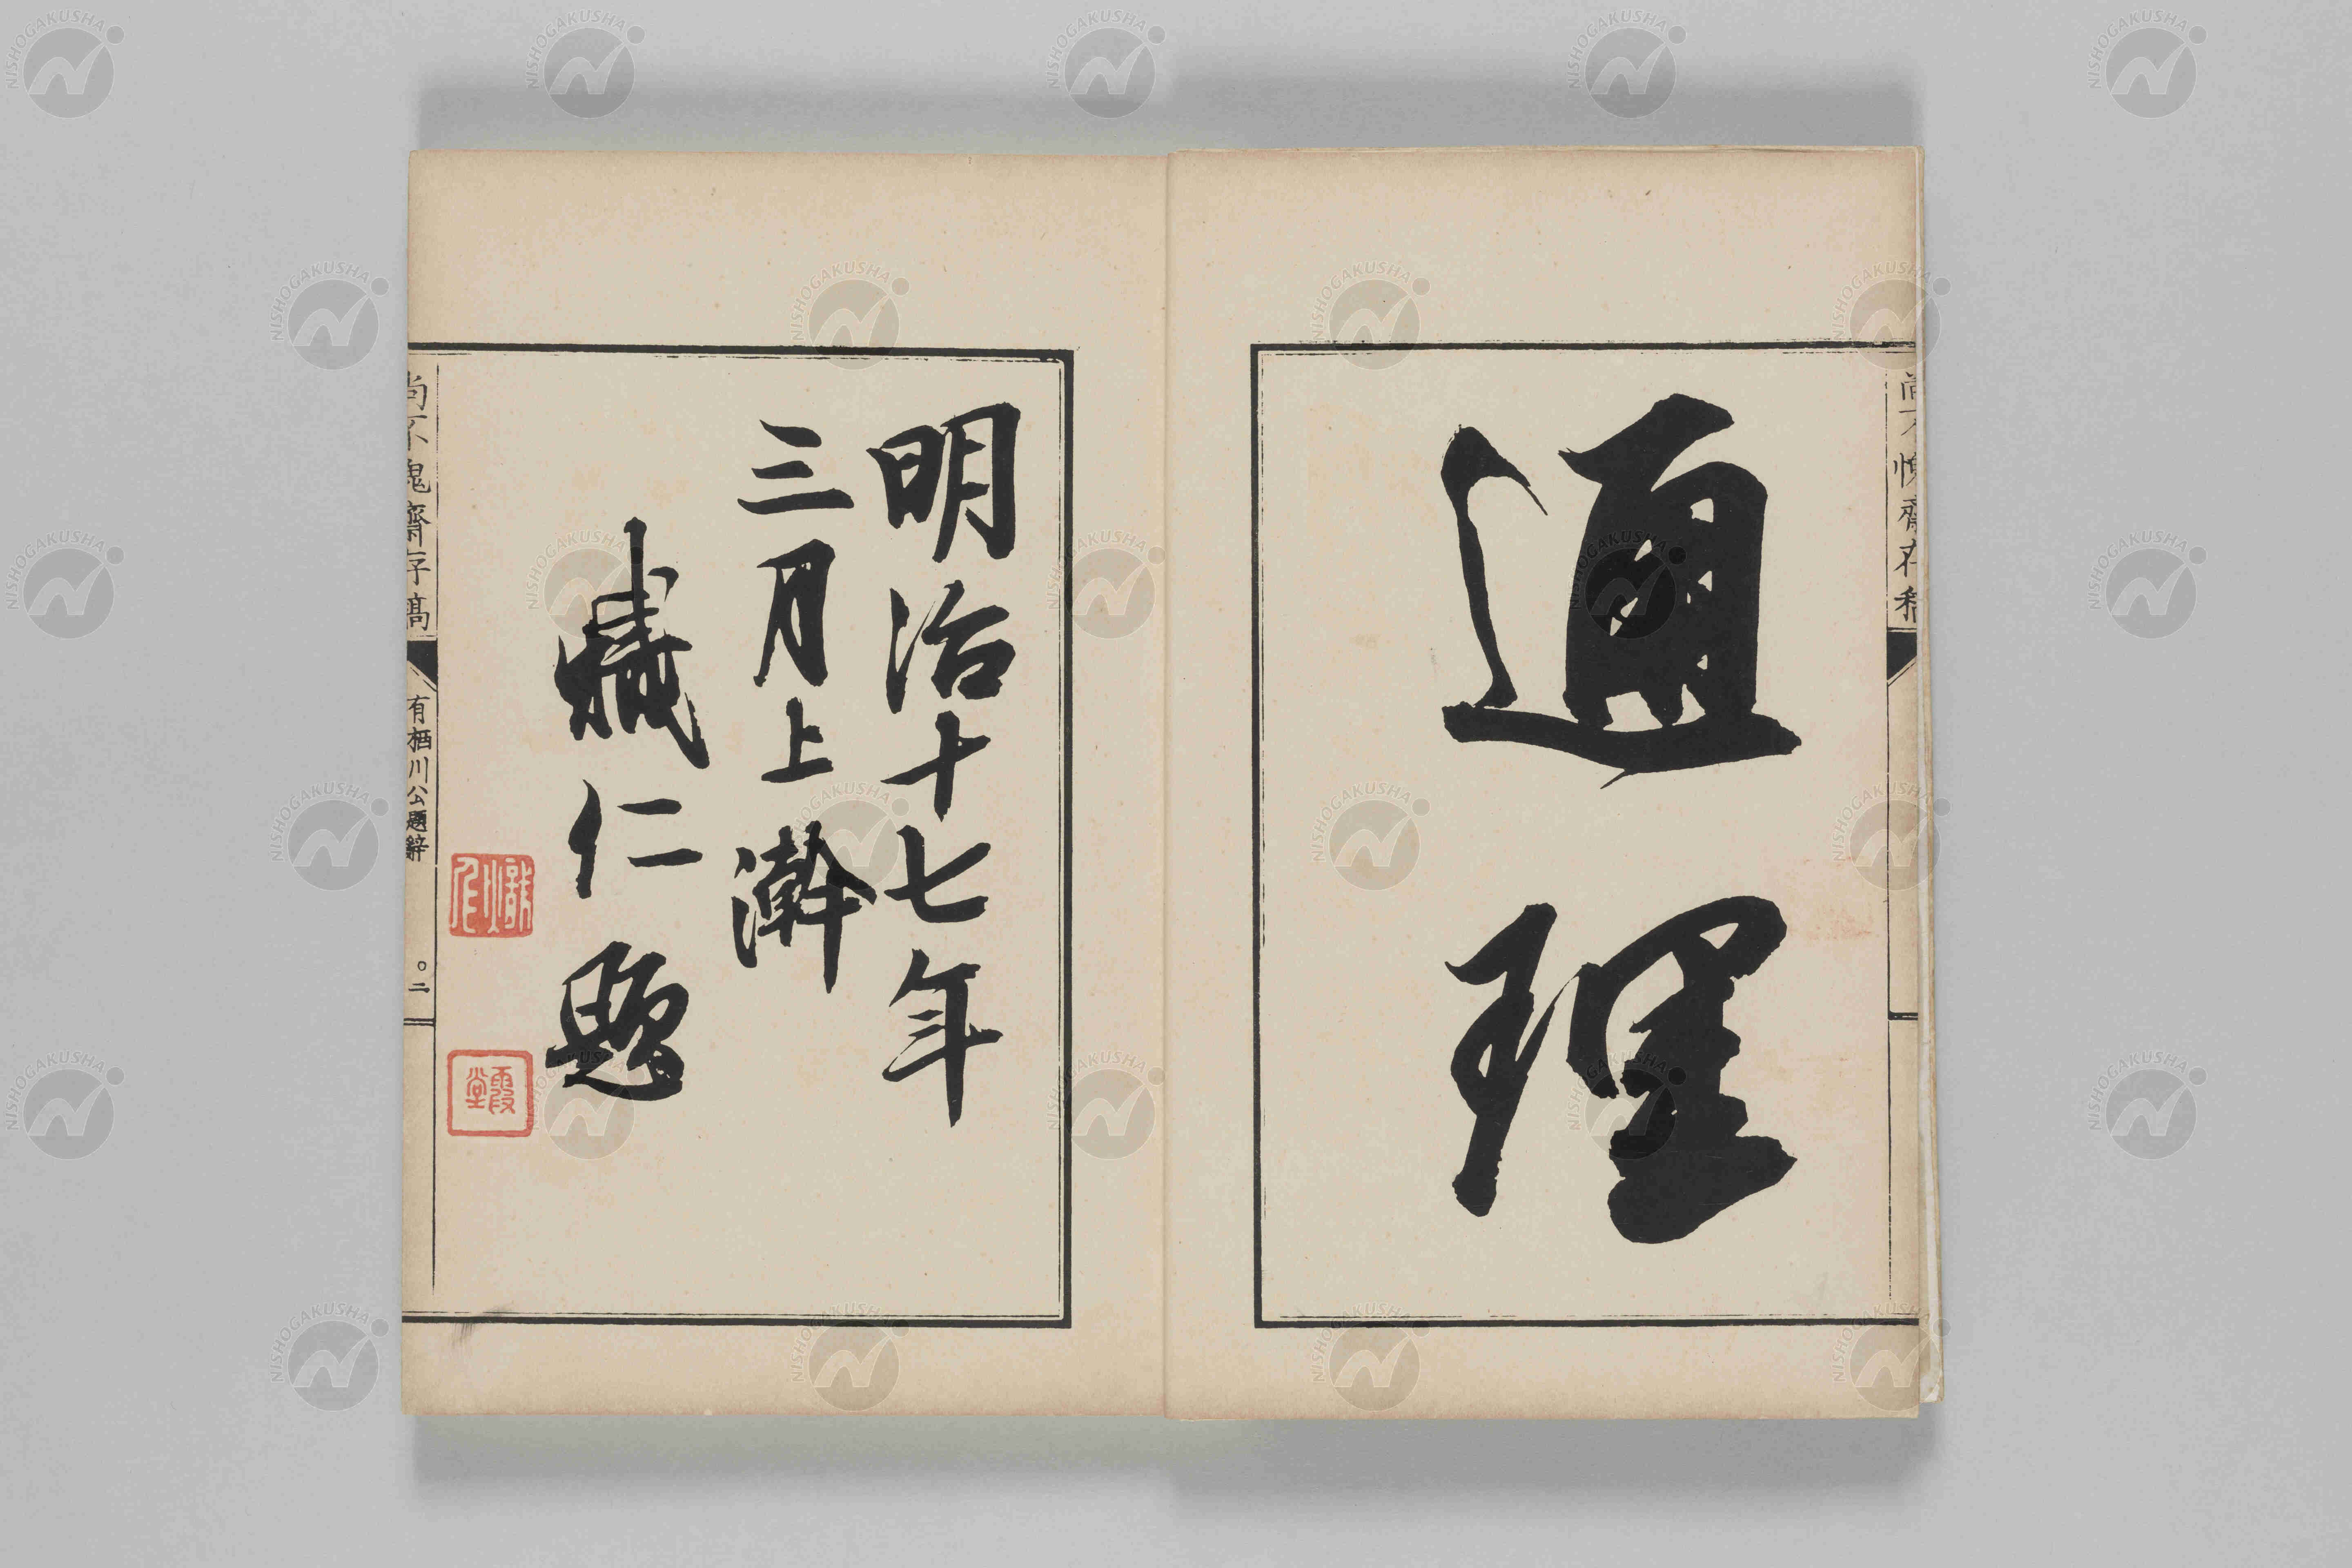 尚不愧齋存稿
通理
明治十七年
三月上澣
熾仁題
熾仁
霞堂
尚不愧齋存稿
有栖川公題辭
〇二
NISHOGAKUSHA